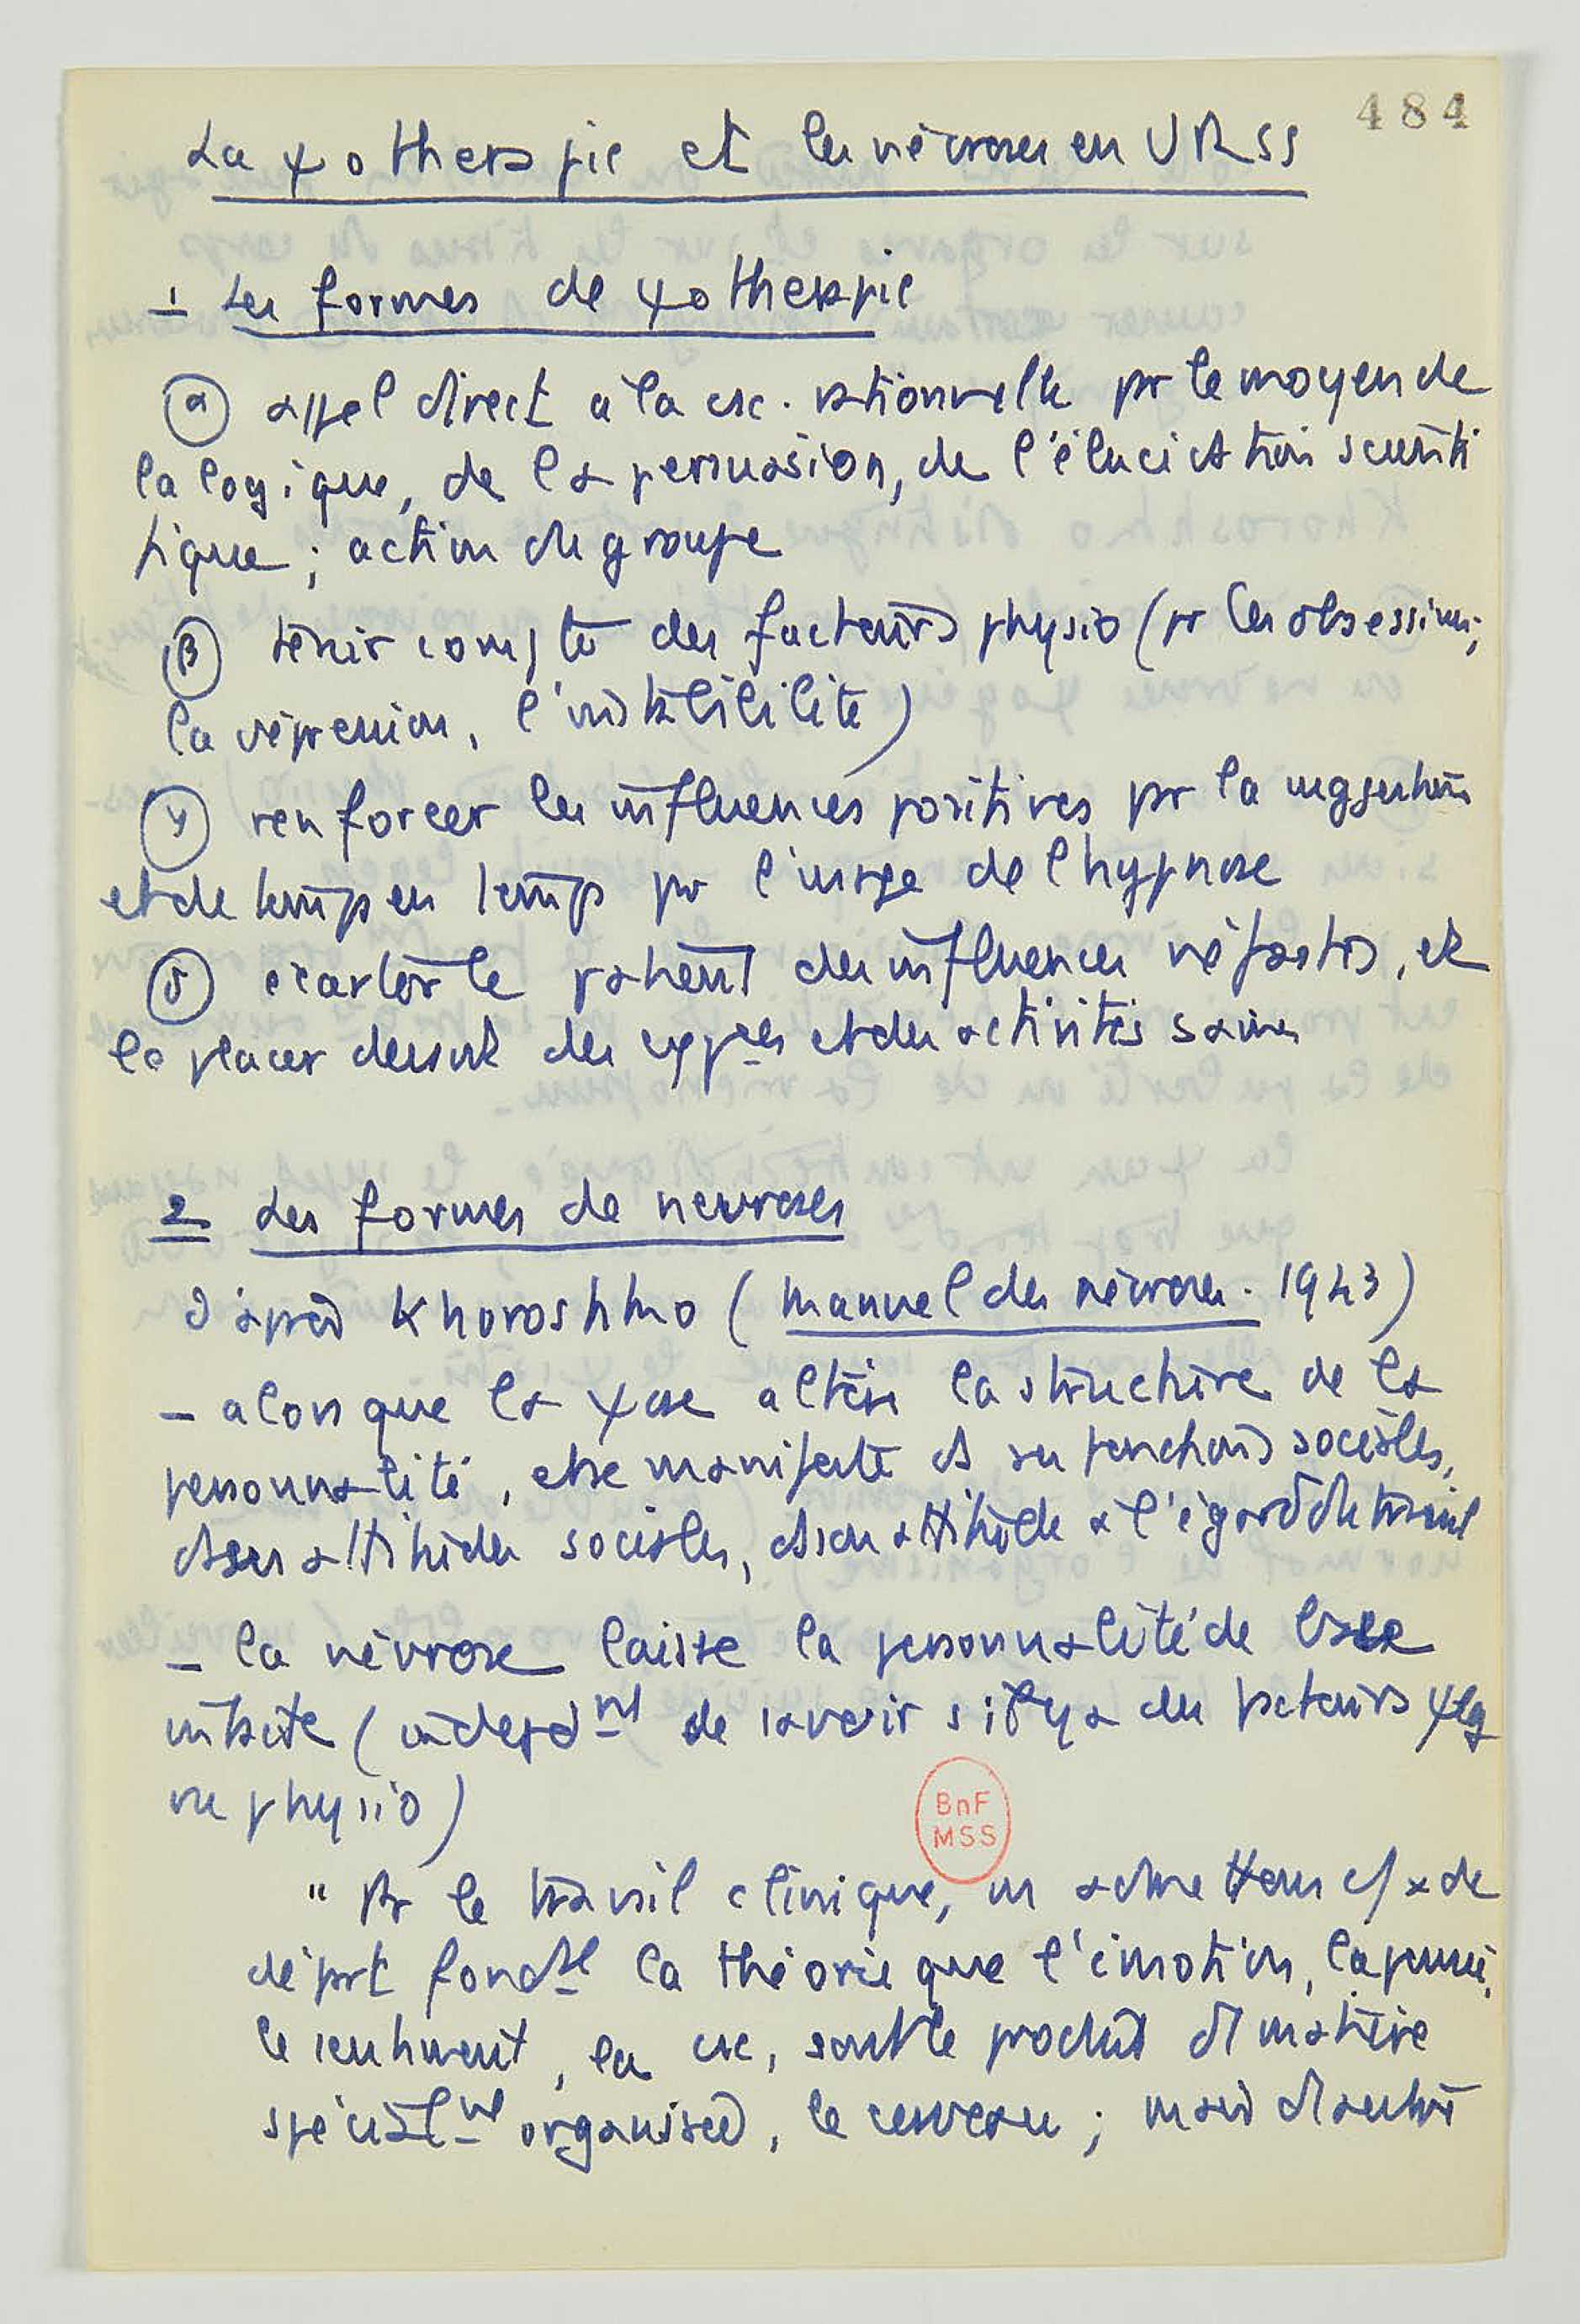 484
La ψothérapie et les névroses en URSS
1 Les formes de ψothérapie
(α) appel direct à la csc. rationnelle par le moyen de
la logique, de la persuasion, de l'élucidation scienti
fique ; action du groupe
(β) tenir compte des facteurs physio (pr les obsessions,
la dépression, l'instabilité)
(γ) renforcer les influences positives par la suggestion
et de temps en temps par l'usage de l'hypnose
(δ) écarter le patient des influences néfastes, et
le placer devant des expces et des activités saines
2 Les formes de névroses
D'après Khoroshko (Manuel des névroses. 1943)
– alors que la ψose altère la structure de la
personnalité, et se manifeste ds ses penchants sociales,
ds ses attitudes sociales, ds son attitude à l'égard du travail
– la névrose laisse la personnalité de base
intacte (indépdmt de savoir s'il y a des facteurs ψlg
ou physio)
BnF
MSS
" Pr le travail clinique, on admettons c/ x de
départ fondal la théorie que l'émotion, la pensée,
le sentiment, la csc, sont le produit d matière
spécialmt organisée, le cerveau ; mais d'autre